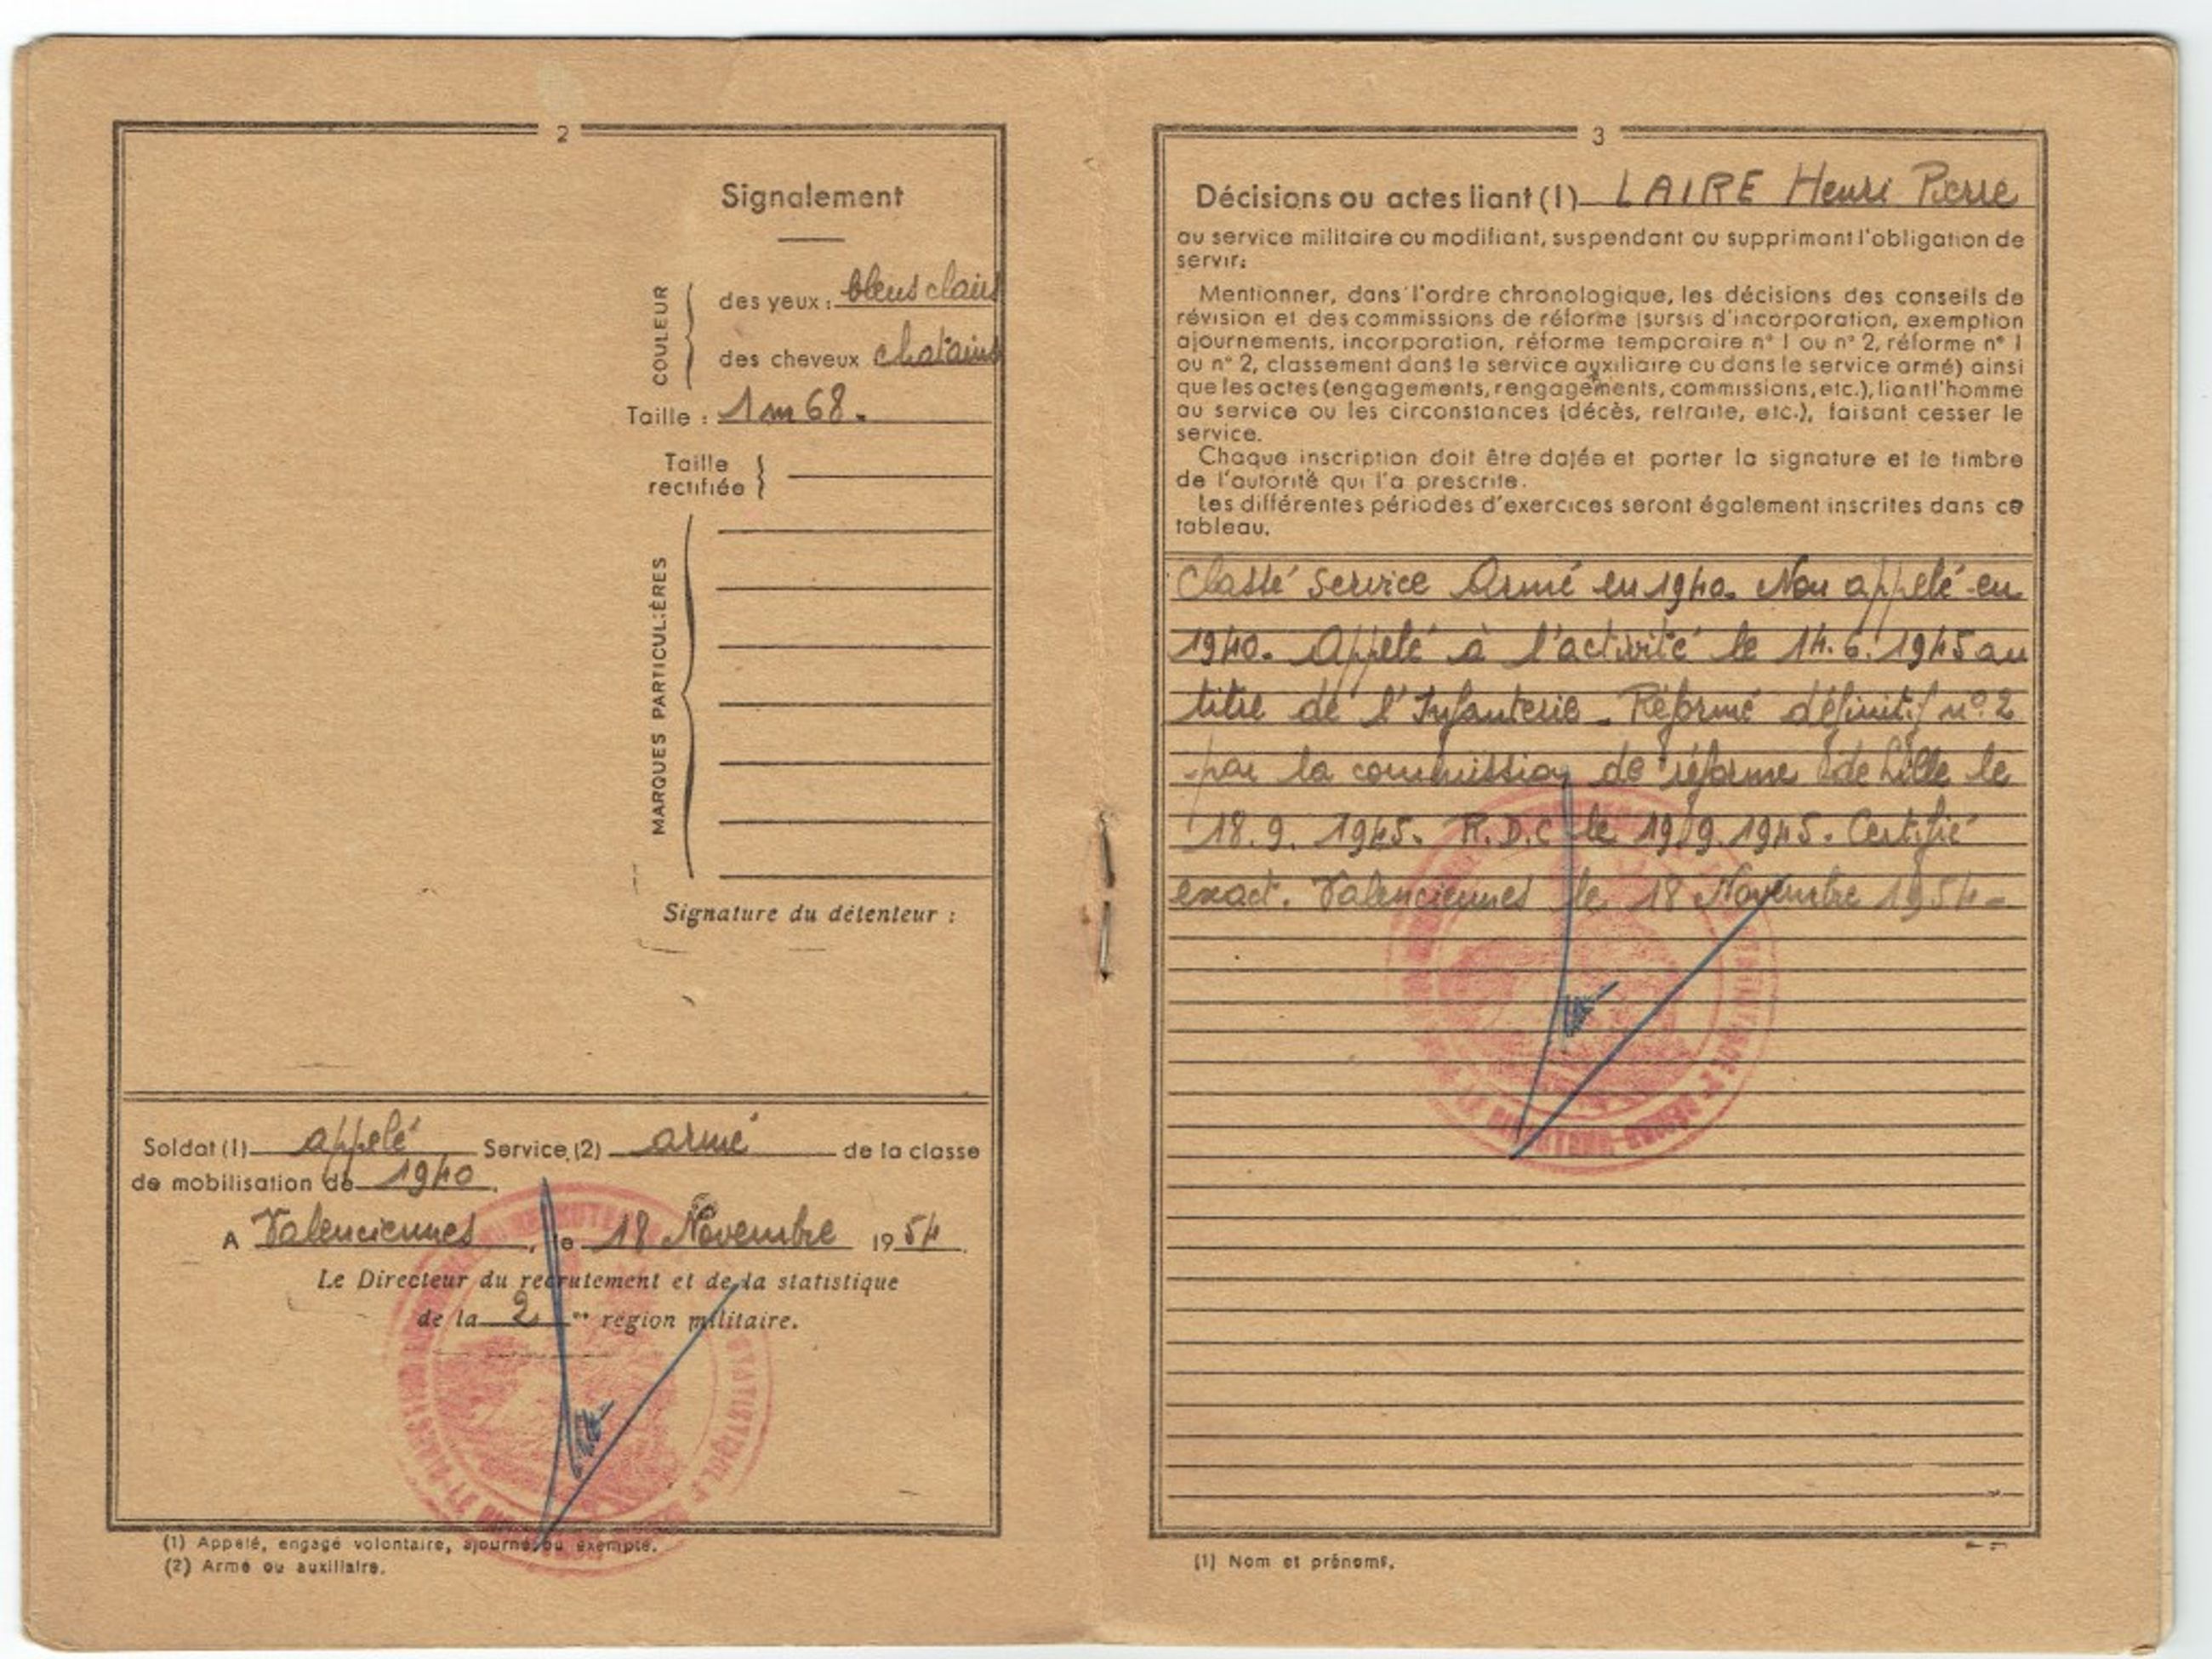 2
Signalement
COULEUR
des yeux : bleus clairs
des cheveux chatains
Taille : 1m68.
Taille
rectifiée
MARQUES PARTICULIÈRES
Signature du détenteur :
Soldat (1) appelé Service (2) armé de la classe
de mobilisation de 1940.
A Valenciennes, le 18 Novembre 1954.
Le Directeur du recrutement et de la statistique
de la 2 me région militaire.
(1) Appelé, engagé volontaire, ajourné ou exempté.
(2) Armé ou auxiliaire.
3
Décisions ou actes liant (1) LAIRE Henri Pierre
au service militaire ou modifiant, suspendant ou supprimant l'obligation de
servir:
Mentionner, dans l'ordre chronologique, les décisions des conseils de
révision et des commissions de réforme (sursis d'incorporation, exemption
ajournements, incorporation, réforme temporaire n° 1 ou n° 2, réforme n° 1
ou n° 2, classement dans le service auxiliaire ou dans le service armé) ainsi
que les actes (engagements, rengagements, commissions, etc.), liant l'homme
au service ou les circonstances (décès, retraite, etc.), faisant cesser le
service.
Chaque inscription doit être datée et porter la signature et le timbre
de l'autorité qui l'a prescrite.
Les différentes périodes d'exercices seront également inscrites dans ce
tableau.
Classé Service Armé en 1940. Non appelé en
1940. Appelé à l'activité le 14.6.1945 au
titre de l'Infanterie. Réformé définitif n° 2
par la commission de réforme de Lille le
18.9.1945. R.D.C le 19.9.1945. Certifié
exact. Valenciennes le 18 Novembre 1954-
(1) Nom et prénoms.